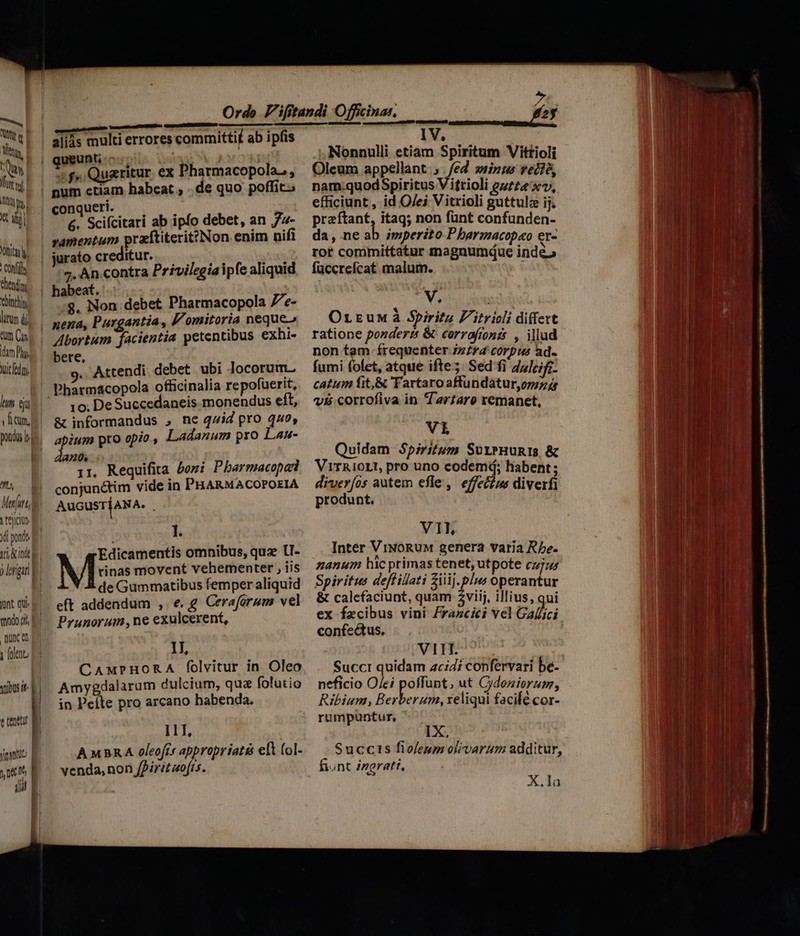 Ordo Visitandi Officinas. 825
aliàs multi errores committit ab ipsis
queunt.
5. Quæritur ex Pharmacopola,
num etiam habeat, de quo possit
conqueri.
6. Sciscitari ab ipso debet, an Ju-
ramentum præstiterit? Non enim nisi
jurato creditur.
7. An contra Privilegia ipse aliquid
habeat.
8. Non debet Pharmacopola Ve-
nena, Purgantia, Vomitoria neque
Abortum facientia petentibus exhi-
bere,
9. Attendi debet ubi locorum
Pharmacopola officinalia reposuerit,
10. De Succedaneis monendus est,
& informandus, ne quid pro quo,
apium pro opio, Ladanum pro Lau-
dano.
11. Requisita boni Pharmacopœi
conjunctim vide in PHARMACOPOEIA
AUGUSTANA.
I.
Medicamentis omnibus, quæ U-
rinas movent vehementer, iis
de Gummatibus semper aliquid
est addendum, e. g. Cerasorum vel
Prunorum, ne exulcerent,
II,
CAMPHORA solvitur in Oleo
Amygdalarum dulcium, quæ solutio
in Peste pro arcano habenda.
III,
AMBRA oleosis appropriatis est sol-
venda, non spirituosis.
IV.
Nonnulli etiam Spiritum Vitrioli
Oleum appellant, sed minus rectè,
nam quod Spiritus Vitrioli guttæ xv,
efficiunt, id Olei Vitrioli guttulæ ij.
præstant, itaq; non sunt confunden-
da, ne ab imperito Pharmacopæo er-
ror committatur magnumque inde
succrescat malum.
V.
OLEUM à Spiritu Vitrioli differt
ratione ponderis & corrosionis, illud
non tam frequenter intra corpus ad-
sumi solet, atque iste; Sed si dulcifi-
catum sit, & Tartaro affundatur, omnis
vis corrosiva in Tartaro remanet,
VI
Quidam Spiritum SULPHURIS &
VITRIOLI, pro uno eodemq; habent;
diversos autem esse, effectus diversi
produnt.
VII,
Inter VINORUM genera varia Rhe-
nanum hic primas tenet, utpote cujus
Spiritus destillati ʒiiij. plus operantur
& calefaciunt, quam ʒviij, illius, qui
ex fæcibus vini Francici vel Gallici
confectus.
VIII.
SUCCI quidam acidi confervari be-
neficio Olei possunt, ut Cydoniorum,
Ribium, Berberum, reliqui facilè cor-
rumpuntur,
IX.
SUCCIS si oleum olivarum additur,
fiunt ingrati,
X. In